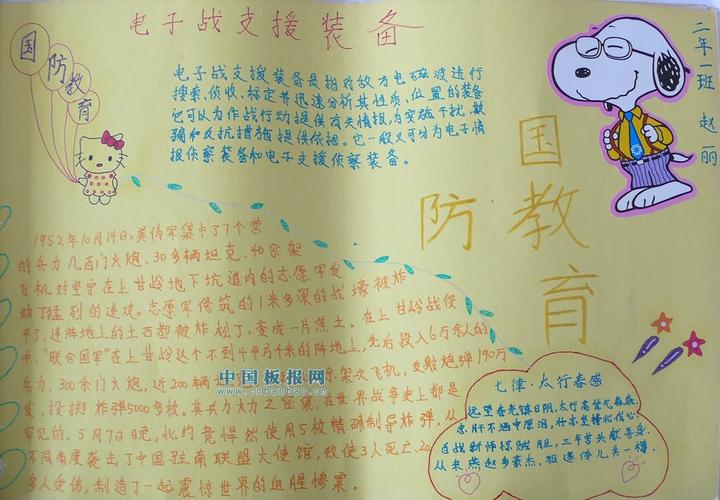 电子战支援装备
国防教育
二年一班 赵丽
电子战支援装备是指对敌方电磁波进行
搜索、侦收、标定并迅速分析其性质、位置的装备
它可以为作战行动提供有关情报，为实施干扰、欺
骗和反抗措施提供依据。它一般又可分为电子情
报侦察装备和电子支援侦察装备。
国防教育
1952年10月14日，美伪军集中了7个营
的兵力几百门火炮、30多辆坦克、40余架
飞机对坚守在上甘岭地下坑道内的志愿军发
动了猛烈的进攻。志愿军修筑的1米多深的战壕被炸
平了，连阵地上的土石都被炸松了，变成一片焦土。在上甘岭战役
中，“联合国军”在上甘岭这个不到4平方千米的阵地上，先后投入6万余人的
兵力，300余门火炮，近200辆 架次飞机，发射炮弹190万
发，投掷炸弹5000多枚。其兵力火力之密集，在世界战争史上都是
罕见的。5月7日晚，北约竟悍然使用5枚精确制导炸弹，从
不同角度袭击了中国驻南联盟大使馆，致使3人死亡，20
多人受伤，制造了一起震惊世界的血腥惨案。
中国板报网
www.cnbanbao.cn
七律·太行春感
远望春光镇日阴，太行高耸气森森。
忠肝不洒中原泪，壮志坚持北伐心。
百战新师惊贼胆，三年苦斗献吾身。
从来燕赵多豪杰，驱逐倭儿共一樽。